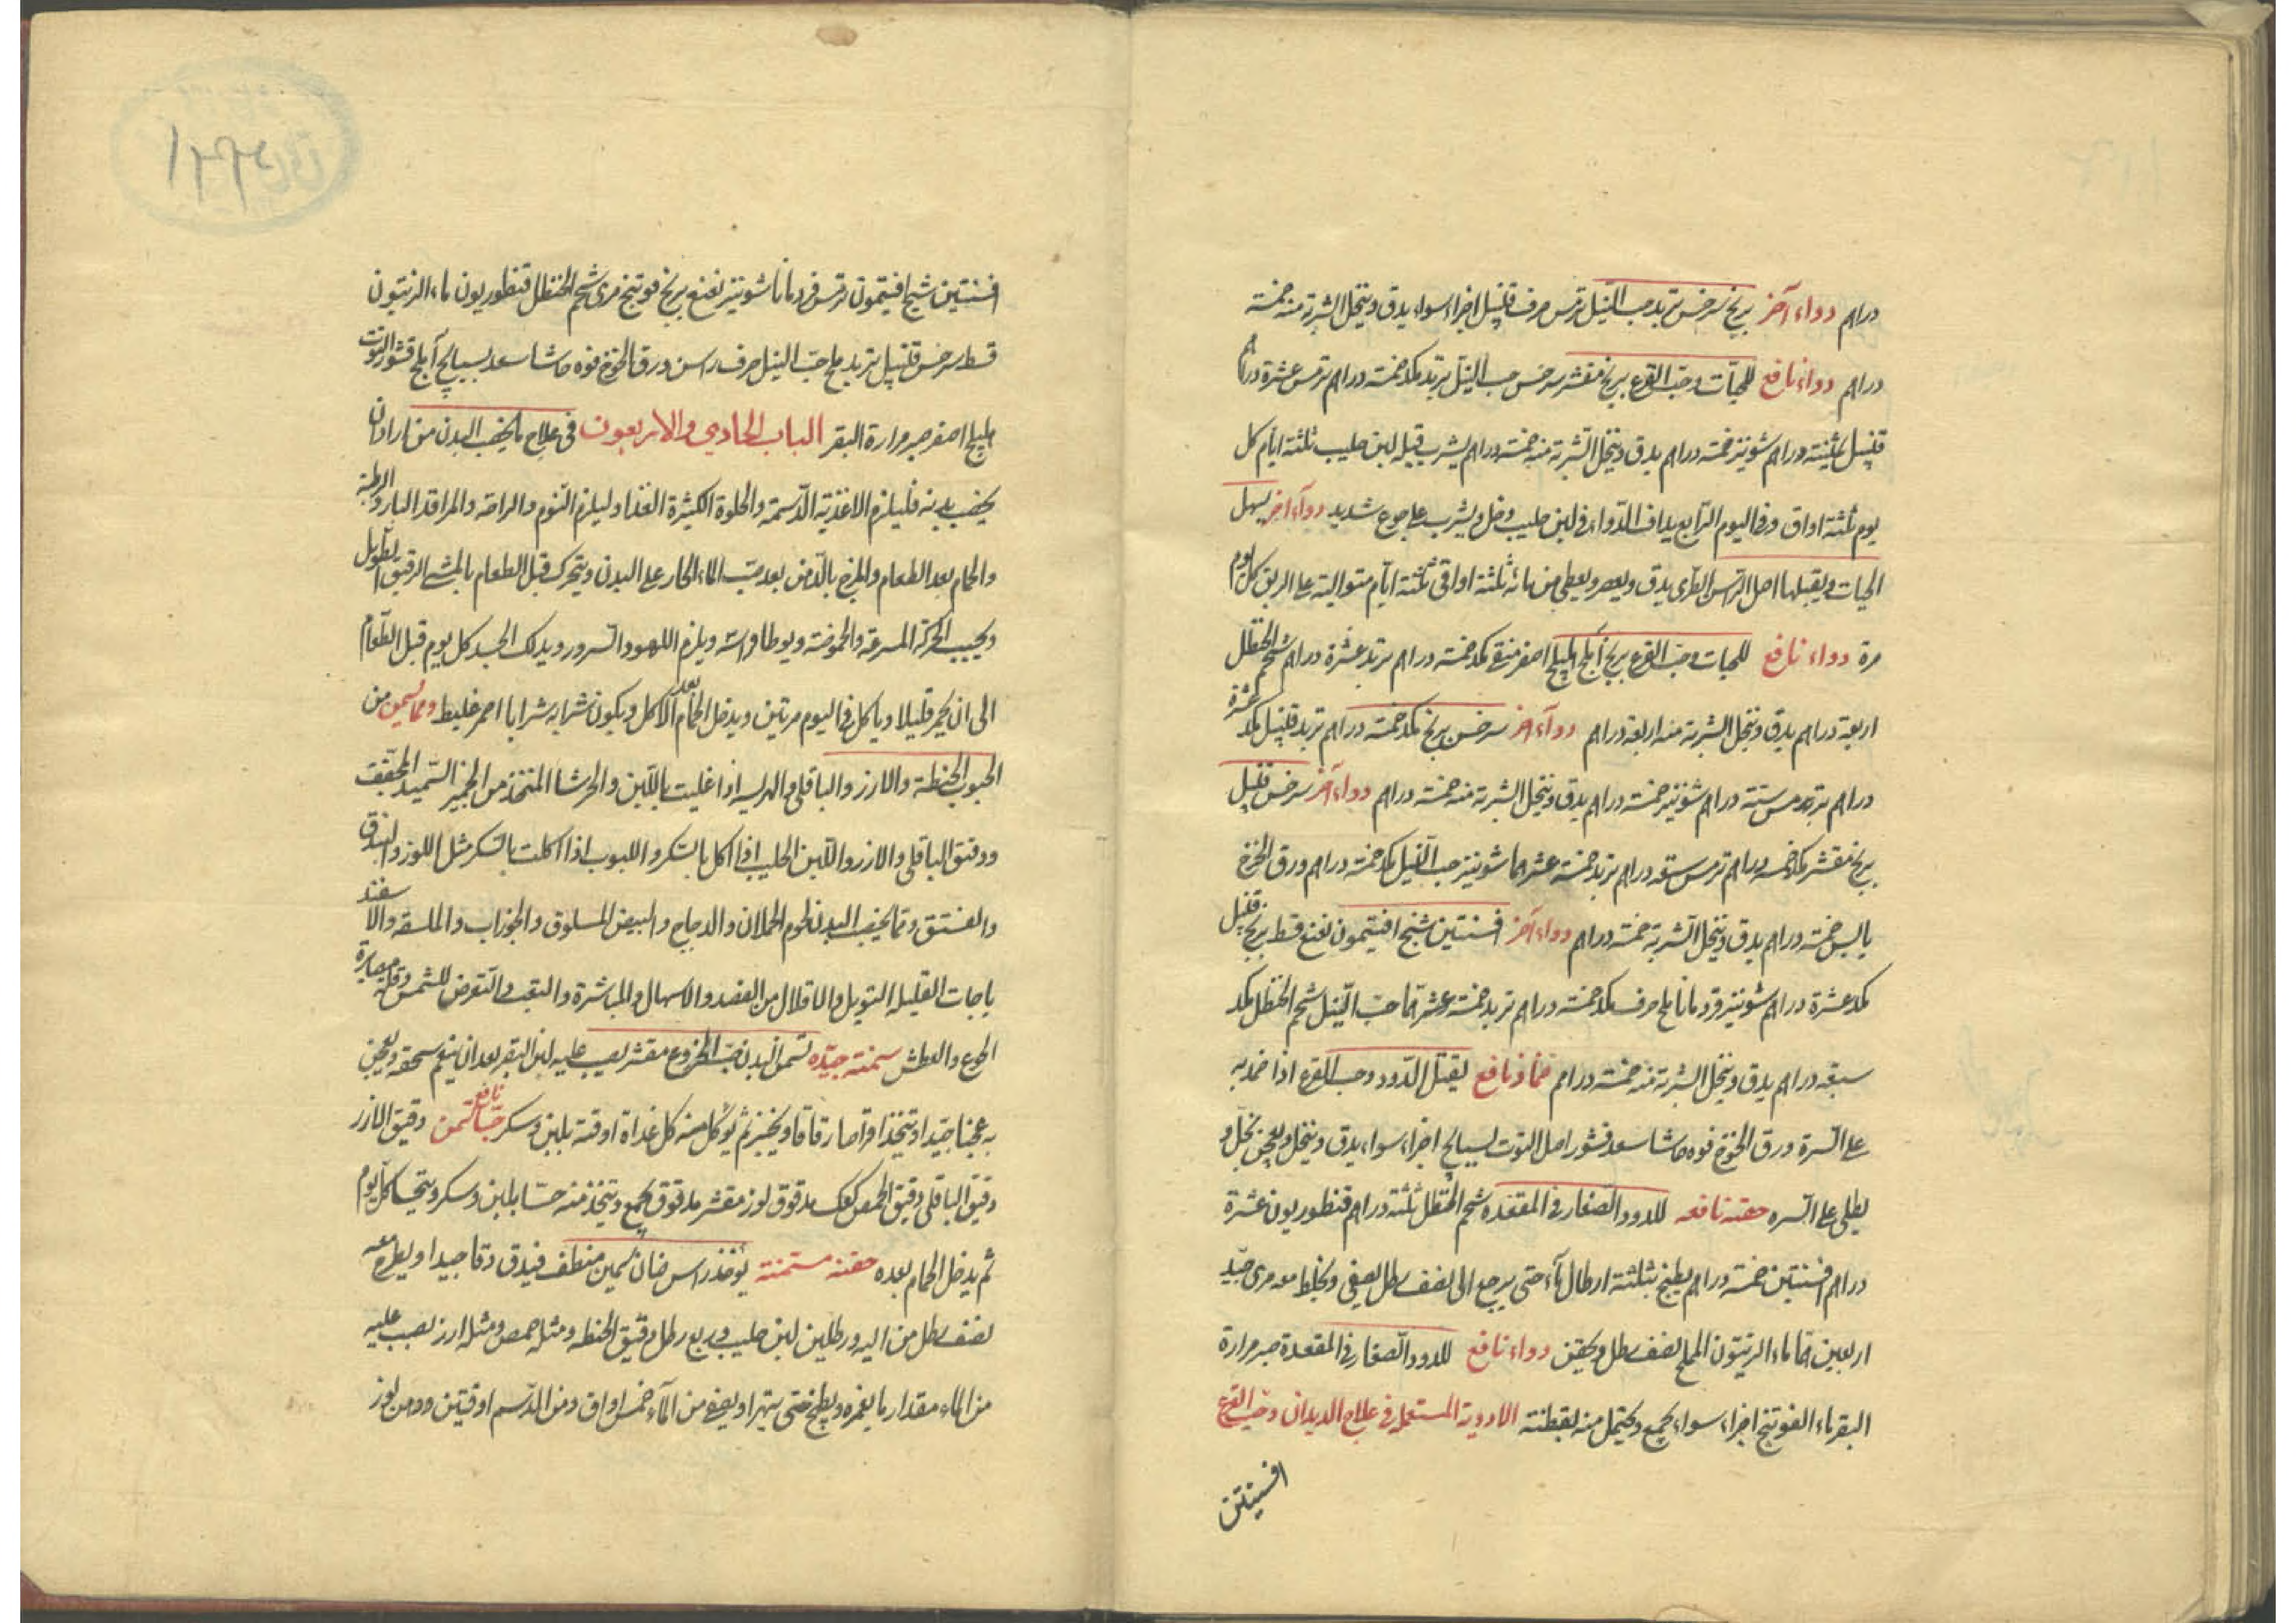 دراهم دواء آخر برنج سرخس تربد حب النيل ترمس حرف قنبيل اجزاء سواء يدق وينخل الشربة منه خمسة
دراهم دواء نافع للحيات وحب القرع برنج مقشر سرخس حب النيل تربد مكد خمسة دراهم ترمس عشرة دراهم
قنبيل ثمنية دراهم شونيز خمسة دراهم يدق وينخل الشربة منه خمسة دراهم يشرب قبله لبن حليب ثلثة ايام كل
يوم ثلثة اواق وفي اليوم الرابع يداف الدواء في لبن حليب وخل ويشرب على جوع شديد دواء اخر يسهل
الحيات ويقتلها اصل الراسن الطرى يدق ويعصر ويعطى من مائه ثلثة اواقى ثلثة ايام متوالية على الريق كل يوم
مرة دواء نافع للحيات وحب القرع برنج آملج اهليلج اصفر منقى مكد خمسة دراهم تربد عشرة دراهم شحم الحنظل
اربعة دراهم يدق وينخل الشربة منه اربعة دراهم دواء آخر سرخس برنج مكد خمسة دراهم تربد قنبيل مكد عشرة
دراهم ترمس ستة دراهم شونيز خمسة دراهم يدق وينخل الشربة منه خمسة دراهم دواء آخر سرخس قنبيل
برنج مقشر مكد خمسة دراهم ترمس سبعة دراهم تربد خمسة عشر درهما شونيز حب النيل مكد خمسة دراهم ورق الخوخ
يابس خمسة دراهم يدق وينخل الشربة خمسة دراهم دواء آخر افسنتين شيح افتيمون نعنع قسط برنج قنبيل
مكد عشرة دراهم شونيز قردمانا ملح حرف مكد خمسة دراهم تربد خمسة وعشر درهما حب النيل شحم الحنظل مكد
سبعة دراهم يدق وينخل الشربة منه خمسة دراهم ضماد نافع يقتل الدود وحب القرع اذا ضمد به
على السرة ورق الخوخ فوه حاشا سعد قشور اصل التوت بسبايج اجزاء سواء يدق وينخل ويعجن بخل و
يطلى على السره حقنة نافعه للدود الصغار في المقعده شحم الحنظل ثلثة دراهم قنطوريون عشرة
دراهم افسنتين خمسة دراهم يطبخ بثلثة ارطال ماء حتى يرجع الى نصف رطل يصفى ويخلط معه مرى جيد
اربعين درهما ماء الزيتون المملح نصف رطل ويحقن دواء نافع للدود الصغار في المقعدة صبر مرارة
البقر ماء الفوتنج اجزاء سواء يجمع ويحتمل منه بقطنة الادوية المستعملة في علاج الديدان وحب القرع
افسنتين
افسنتين شيح افتيمون ترمس قردمانا شونيز نعنع برنج فوتنج مرى شحم الحنظل قنطوريون ماء الزيتون
قسط سرخس قنبيل تربد ملح حب النيل حرف راسن ورق الخوخ فوه حاشا سعد بسبايج آملج قشور التوت
هليلج اصفر صبر مرارة البقر الباب الحادي والاربعون في علاج ما يخصب البدن من اراد ان
يخصب بدنه فليلزم الاغذية الدسمة والحلوة الكثيرة الغذا وليلزم النوم والراحة والمراقد الباردة الرطبة
والحمام بعد الطعام والمرخ بالدهن بعد صب الماء الحار على البدن ويتحرك قبل الطعام بالمشى الرقيق الطويل
ويجنب الحركة المسرعة والحموضة ويوطا فراشه ويلزم اللهو والسرور ويدلك الجسد كل يوم قبل الطعام
الى ان يحمر قليلا وياكل في اليوم مرتين ويدخل الحمام بعد الاكل ويكون شرابه شرابا احمر غليظ ومما يسمن من
الحبوب الحنطة والارز والباقلى والهريسه اذا غليت باللبن والحرشا المتخذ من الخبز السميد المجفف
ودقيق الباقلى والارز واللبن الحليب اذا اكل بالسكر واللبوب اذا اكلت بالسكر مثل اللوز والبندق
والفستق ومما يخصب البدن لحوم الحملان والدجاج والبيض المسلوق والجوذاب والملبقه والاسفيد
باجات القليلة التوابل والاقلال من الفصد والاسهال والمباشرة والتعب والتعرض للشمس وقلة مصابرة
الجوع والعطش سمنة جيده تسمن البدن حب الخروع مقشر يصب عليه لبن البقر بعد ان ينعم سحقه ويعجن
به عجنا جيدا ويتخذ اقراصا رقاقا ويخبز ثم يوكل منه كل غداة اوقية بلبن وسكر حسا نافع يسمن دقيق الارز
دقيق الباقلى دقيق الحمص كعك مدقوق لوز مقشر مدقوق يجمع ويتخذ منه حسا بلبن وسكر ويتحسا كل يوم
ثم يدخل الحمام بعده حقنة مسمنة يوخذ راس ضان سمين منظف فيدق دقا جيدا ويطرح معه
نصف رطل من اليه ورطلين لبن حليب وربع رطل دقيق الحنطه ومثله حمص ومثله ارز يصب عليه
من الماء مقدار ما يغمره ويطبخ حتى يتهرا ويصفى من الماء خمس اواق ومن الدسم اوقيتين ودهن لوز